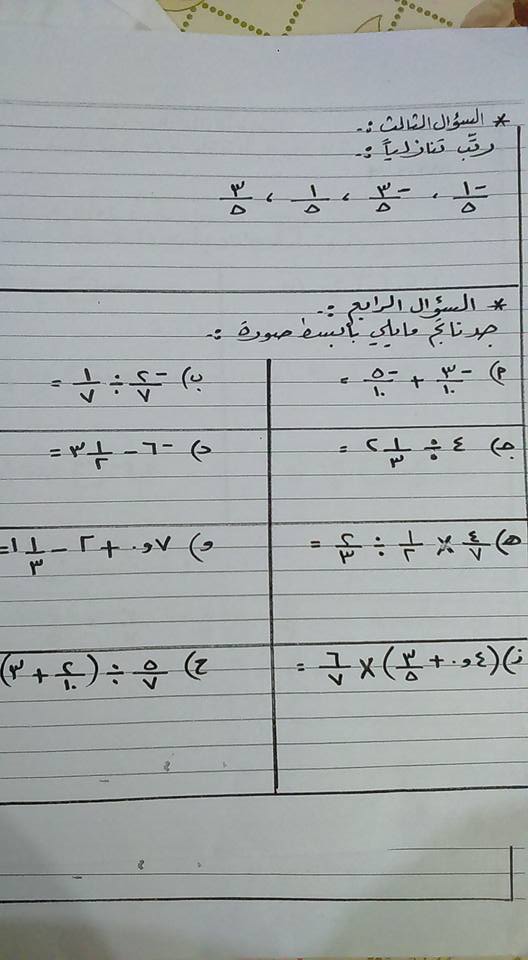 * السؤال الثالث :-
رتّب تنازلياً :-
-١/٥ ، -٣/٥ ، ١/٥ ، ٣/٥
* السؤال الرابع :-
جد ناتج ما يلي بأبسط صورة :-
أ) -٣/١٠ + -٥/١٠ =
ب) -٢/٧ ÷ ١/٧ =
جـ) ٤ ÷ ٢ ١/٣ =
د) -٦ - ٣ ١/٢ =
هـ) ٤/٧ × ١/٢ ÷ ٢/٣ =
و) ٠,٧ + ٢ - ١ ١/٣ =
ز) (٠,٤ + ٣/٥) × ٦/٧ =
ح) ٥/٧ ÷ (٢/١٠ + ٣)